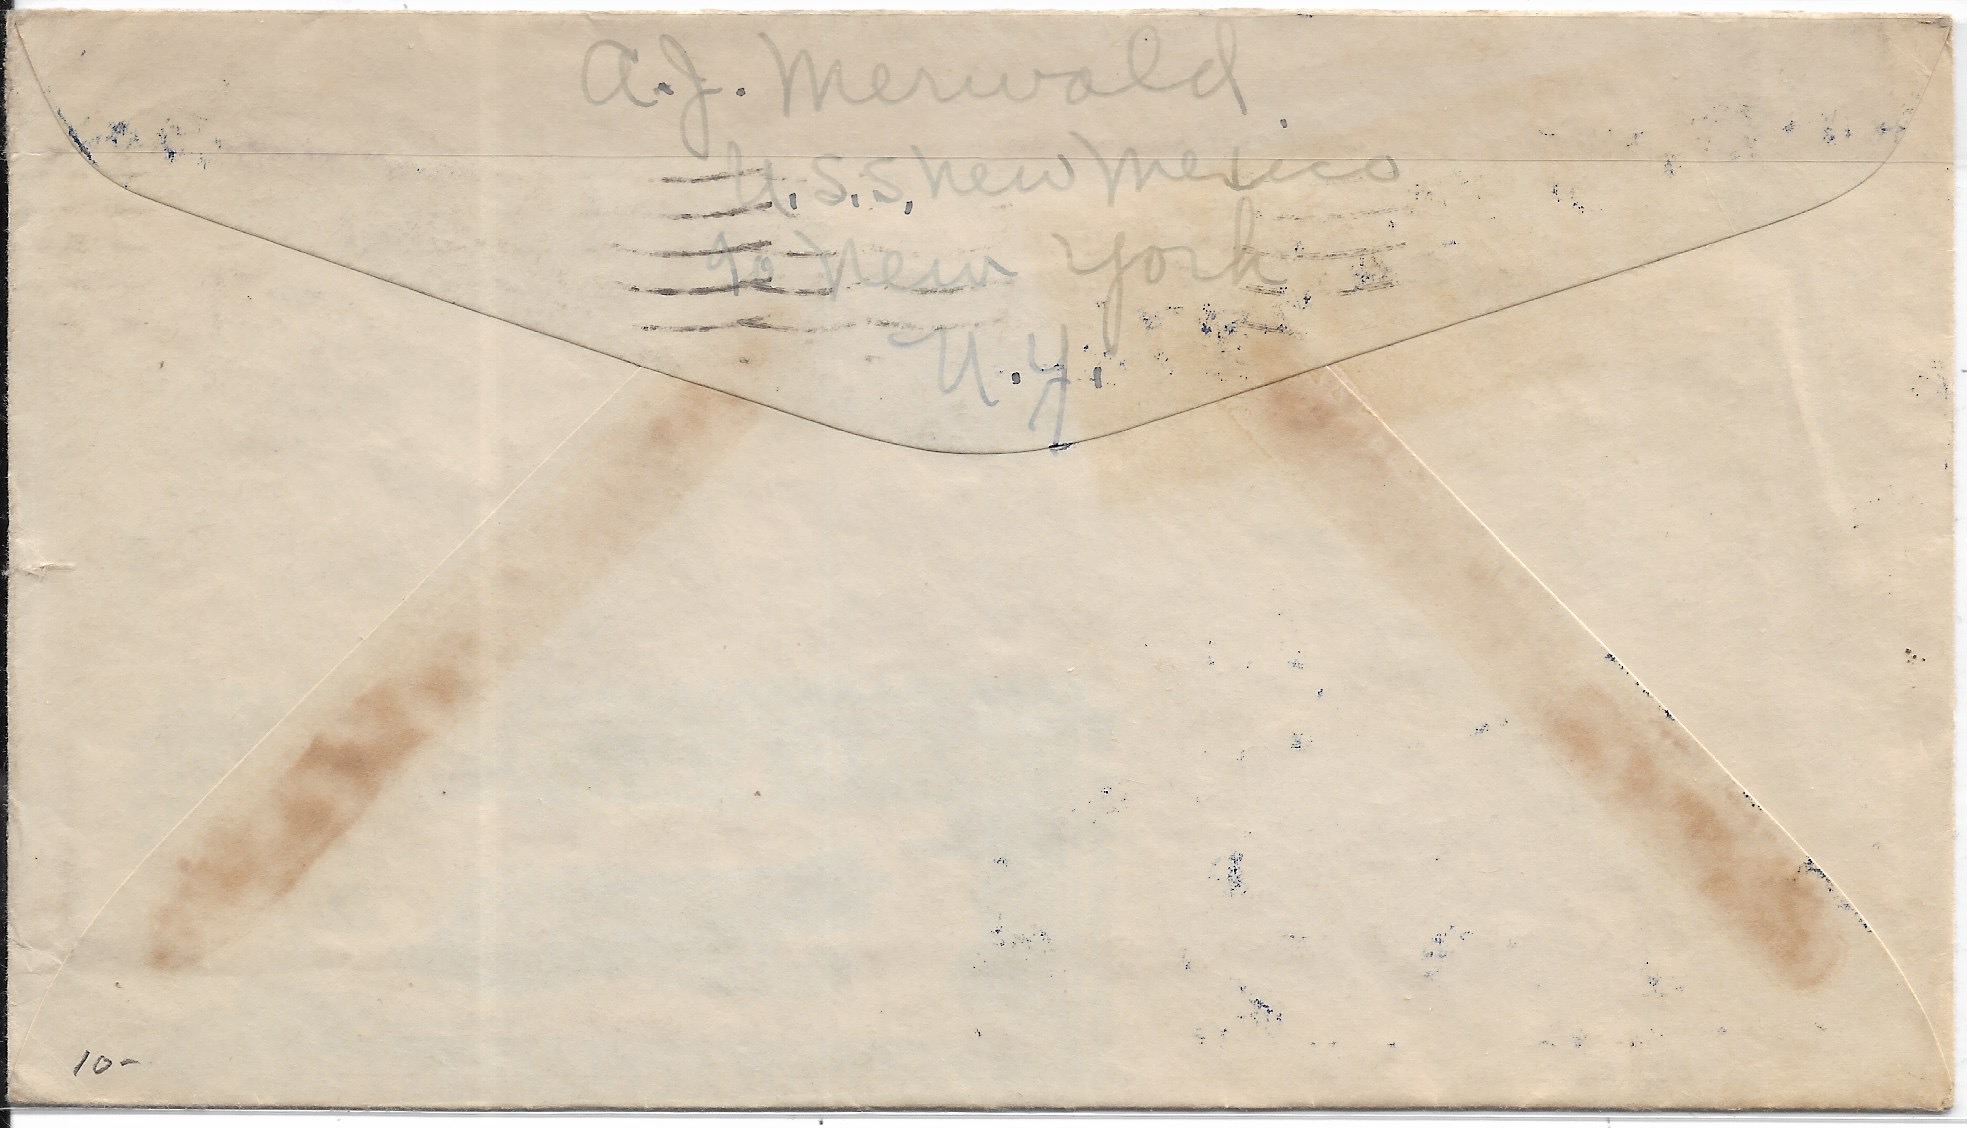 A.J. Merwald
U.S.S. New Mexico
℅ New York
N.Y.
10-